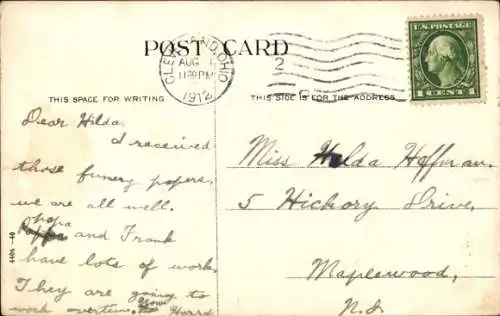 POST CARD
CLEVELAND, OHIO
AUG
11 30 PM
1912
2
U.S. POSTAGE
1 CENT 1
THIS SPACE FOR WRITING
THIS SIDE IS FOR THE ADDRESS
Dear Hilda,
I received
those funny papers,
we are all well.
papa and Frank
have lots of work,
They are going to
work overtime
Miss Hilda Hoffman.
5 Hickory Drive,
Maplewood,
N.J.
4406-40